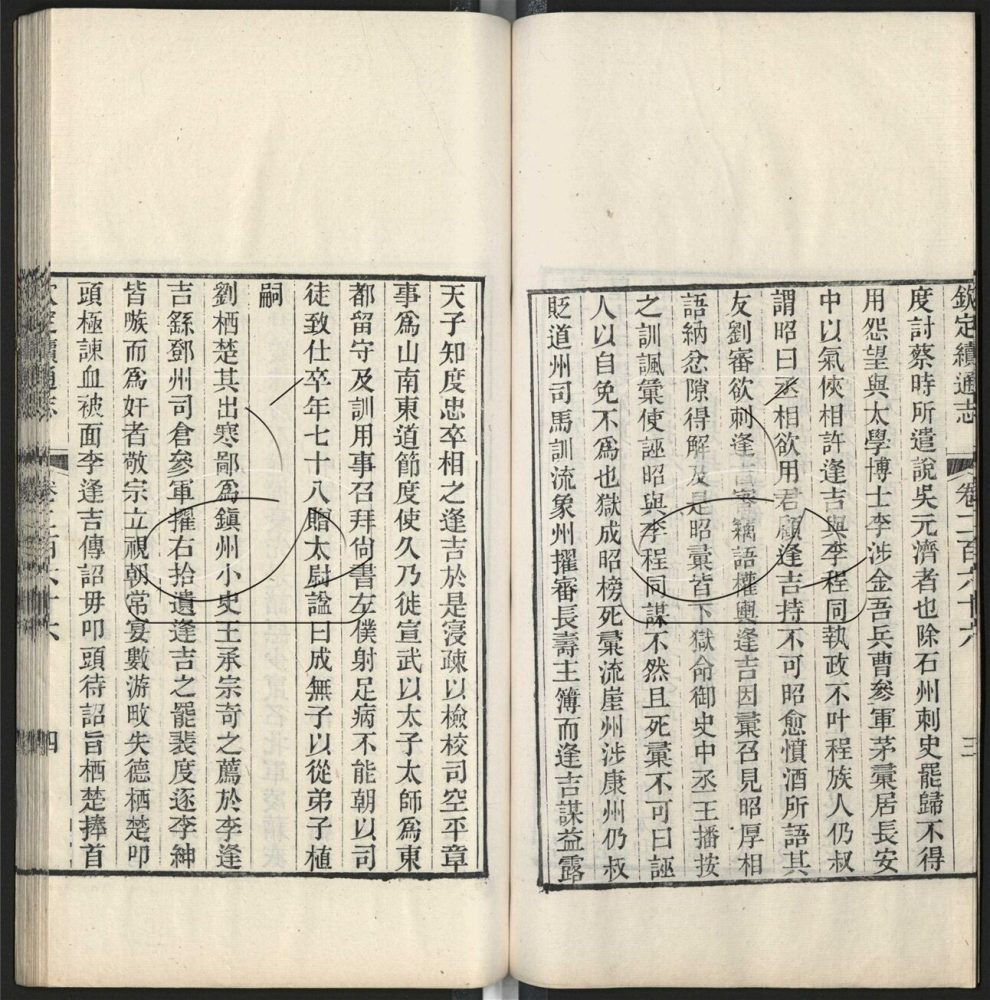 欽定續通志 卷二百六十六 三
度討蔡時所遣說吳元濟者也除石州刺史罷歸不得
用怨望與太學博士李涉金吾兵曹參軍茅彙居長安
中以氣俠相許逢吉與李程同執政不叶程族人仍叔
謂昭曰丞相欲用君顧逢吉持不可昭愈憤酒所語其
友劉審欲刺逢吉審竊語權輿逢吉因彙召見昭厚相
語納忿隙得解及是昭彙皆下獄命御史中丞王播按
之訓諷彙使誣昭與李程同謀不然且死彙不可曰誣
人以自免不爲也獄成昭榜死彙流崖州涉康州仍叔
貶道州司馬訓流象州擢審長壽主簿而逢吉謀益露
天子知度忠卒相之逢吉於是寖疎以檢校司空平章
事爲山南東道節度使久乃徙宣武以太子太師爲東
都留守及訓用事召拜尙書左僕射足病不能朝以司
徒致仕卒年七十八贈太尉諡曰成無子以從弟子植
嗣
劉栖楚其出寒鄙爲鎮州小史王承宗奇之薦於李逢
吉繇鄧州司倉參軍擢右拾遺逢吉之罷裴度逐李紳
皆嗾而爲奸者敬宗立視朝常宴數游畋失德栖楚叩
頭極諫血被面李逢吉傳詔毋叩頭待詔旨栖楚捧首
四